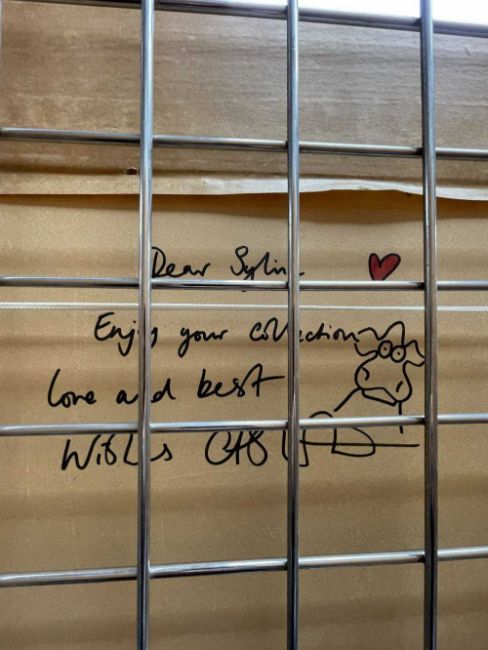 Dear
Enjoy your collection
love and best
Wishes